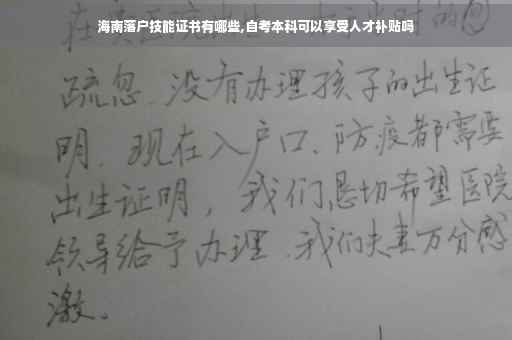 海南落户技能证书有哪些,自考本科可以享受人才补贴吗
疏忽.没有办理孩子的出生证
明.现在入户口、防疫都需要
出生证明，我们恳切希望医院
领导给予办理.我们夫妻万分感
激。